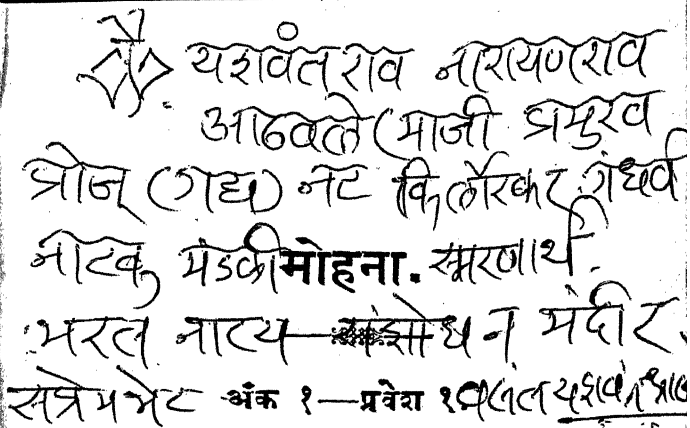 यशवंतराव नारायणराव
आठवले (माजी प्रमुख
प्रोज् (गद्य) नट किर्लोस्कर गंधर्व
नाटक मंडळी मोहना. स्मरणार्थ.
भरत नाट्य संशोधन मंदीर.
सप्रेम भेट अंक १—प्रवेश १ वसंत यशवंत